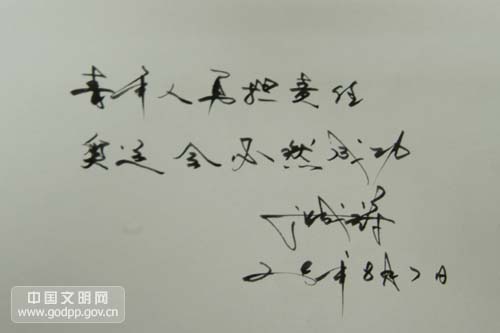 青年人担责任
奥运会必然成功
2008年8月7日
中国文明网
www.godpp.gov.cn